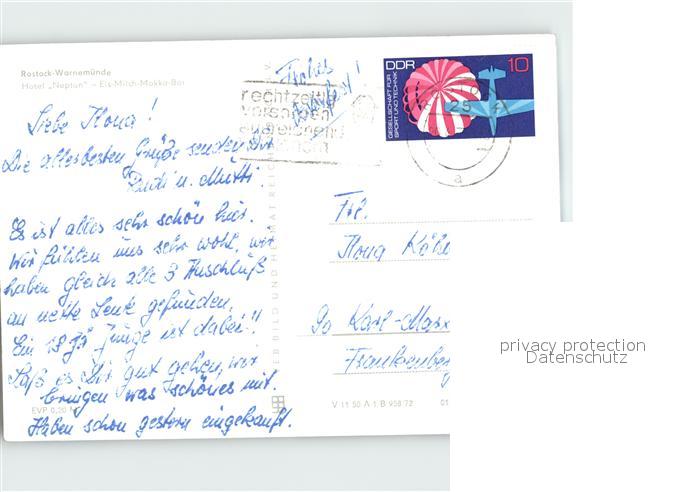 Rostock-Warnemünde
Hotel „Neptun" – Eis-Milch-Mokka-Bar
Frohes
DDR 10
GESELLSCHAFT FÜR
SPORT UND TECHNIK
rechtzeitig
versichern
ausreichend
Liebe Ilona!
Die allerbesten Grüße senden Dir
Rudi u. Mutti.
Es ist alles sehr schön hier.
Wir fühlen uns sehr wohl, wir
haben gleich alle 3 Anschluß
an nette Leute gefunden.
Ein 18 jr Junge ist dabei!!
Laß es Dir gut gehen, wir
bringen was schönes mit.
Haben schon gestern eingekauft.
Frl.
Ilona
Karl-Marx
Frankenberg
BILD UND HEIMAT REICHENBACH
EVP 0,20
V 11 50 A 1 B 958/72 01
a
privacy protection
Datenschutz